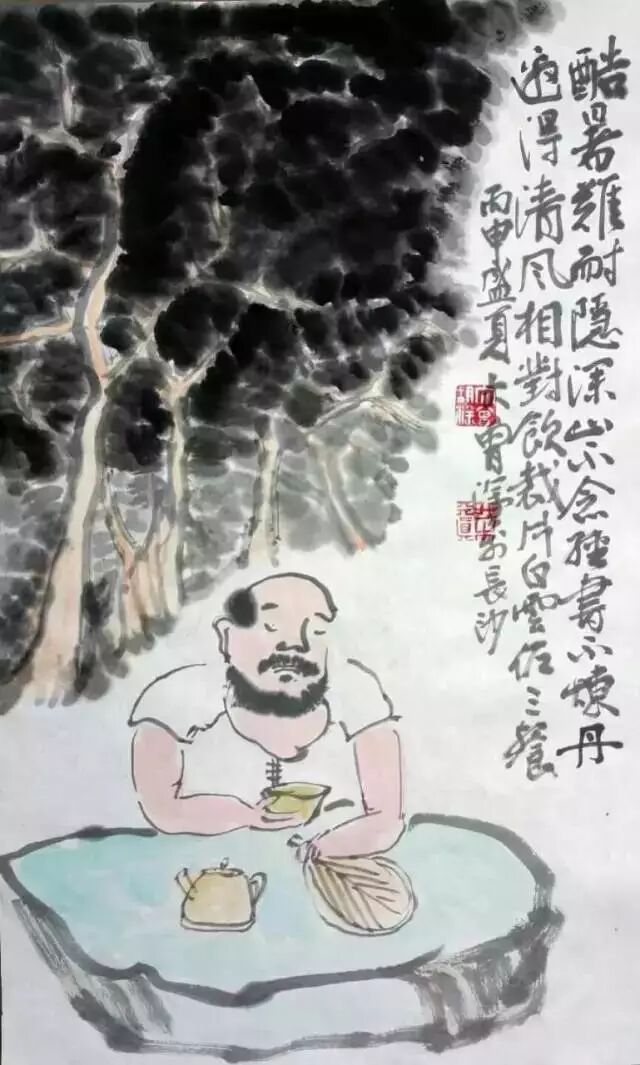 酷暑難耐隱深山不念經書不煉丹
邀得清风相對飲裁片白雲佐三餐
丙申盛夏大胃於長沙